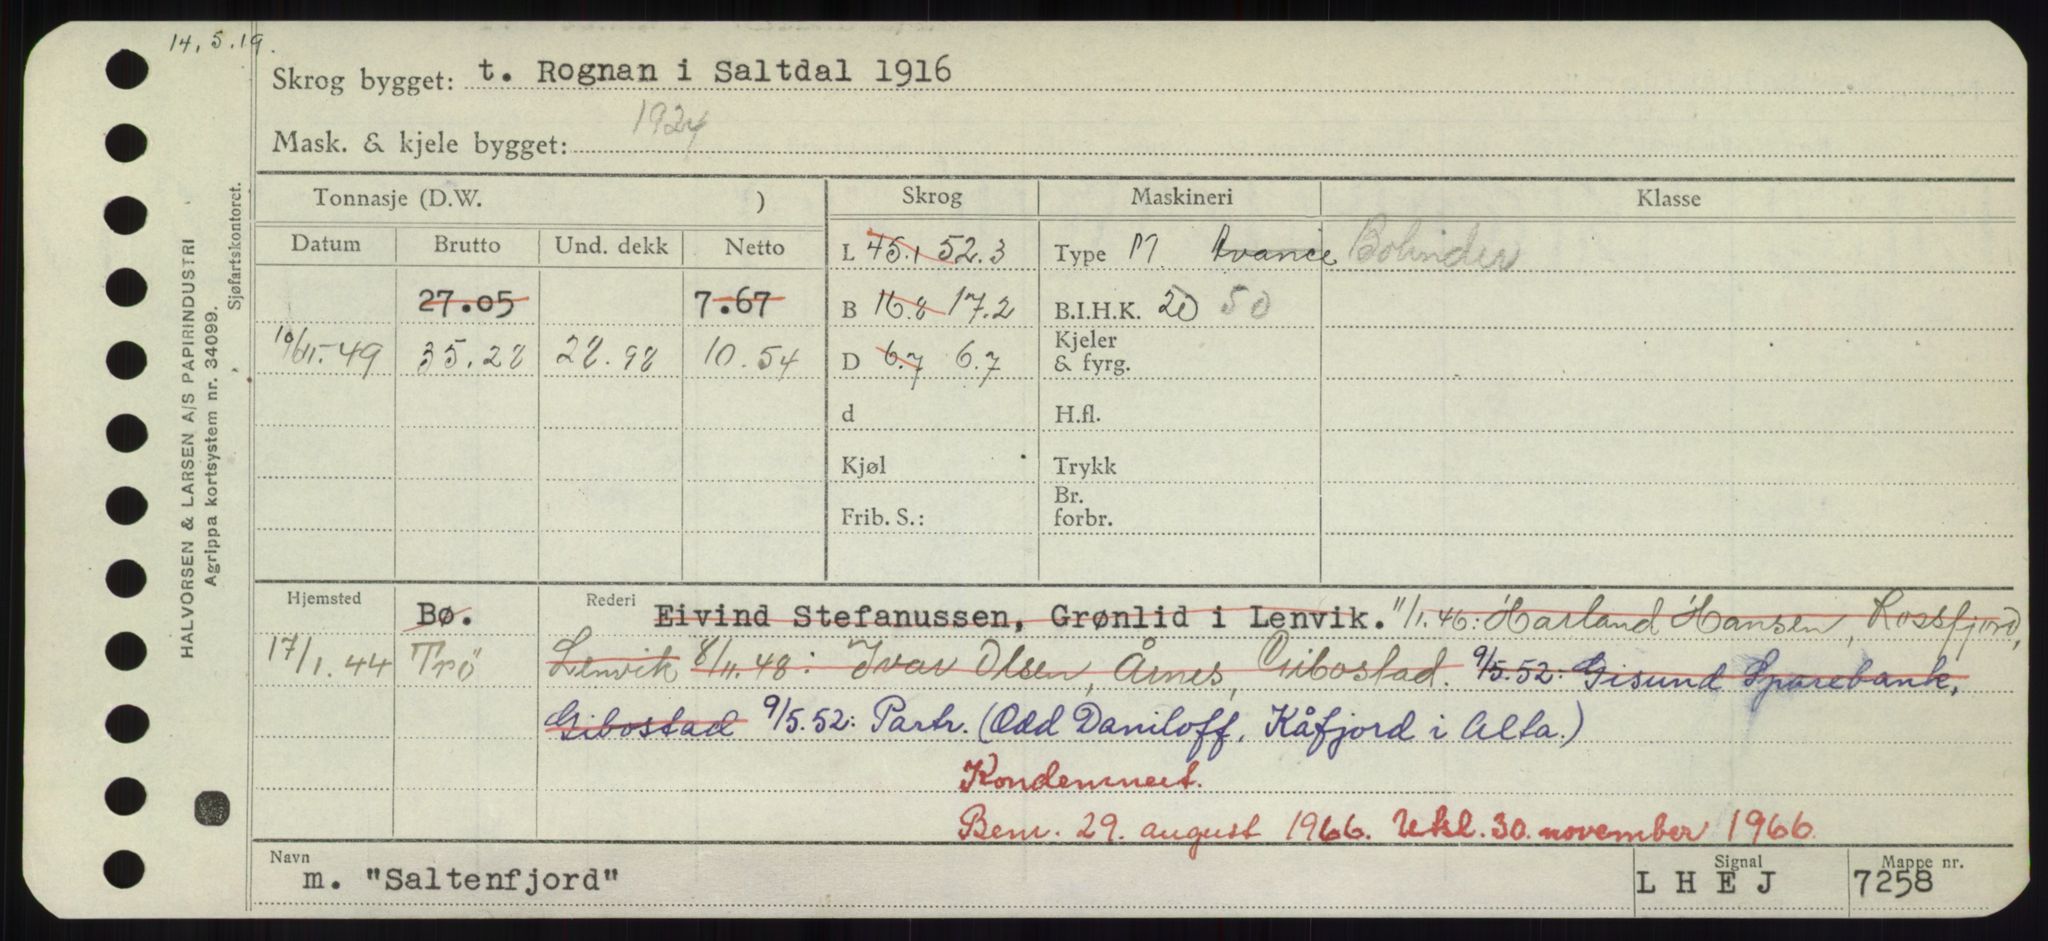 14.5.19.
Skrog bygget: t. Rognan i Saltdal 1916
Mask. & kjele bygget: 1924
Tonnasje (D.W. ) Skrog Maskineri Klasse
Datum Brutto Und. dekk Netto L 45.1 52.3 Type M Avance Bolinder
27.05 7.67 B 16.8 17.2 B.I.H.K. 20 50
10/11.-49 35.28 28.98 10.54 D 6.7 6.7 Kjeler & fyrg.
d H.fl.
Kjøl Trykk
Frib. S.: Br. forbr.
Hjemsted Bø. Rederi Eivind Stefanussen, Grønlid i Lenvik. 11/1.46: Harland Hansen, Rossfjord,
17/1.44 Trö Lenvik 8/11.48: Ivar Olsen, Årnes, Gibostad. 9/5.52: Gisund Sparebank,
Gibostad 9/5.52: Partr. (Odd Daniloff, Kåfjord i Alta.)
Kondemnert.
Bem. 29. august 1966. Utkl. 30. november 1966.
Navn m. "Saltenfjord" Signal L H E J Mappe nr. 7258
HALVORSEN & LARSEN A/S PAPIRINDUSTRI
Agrippa kortsystem nr. 34099.
Sjøfartskontoret.